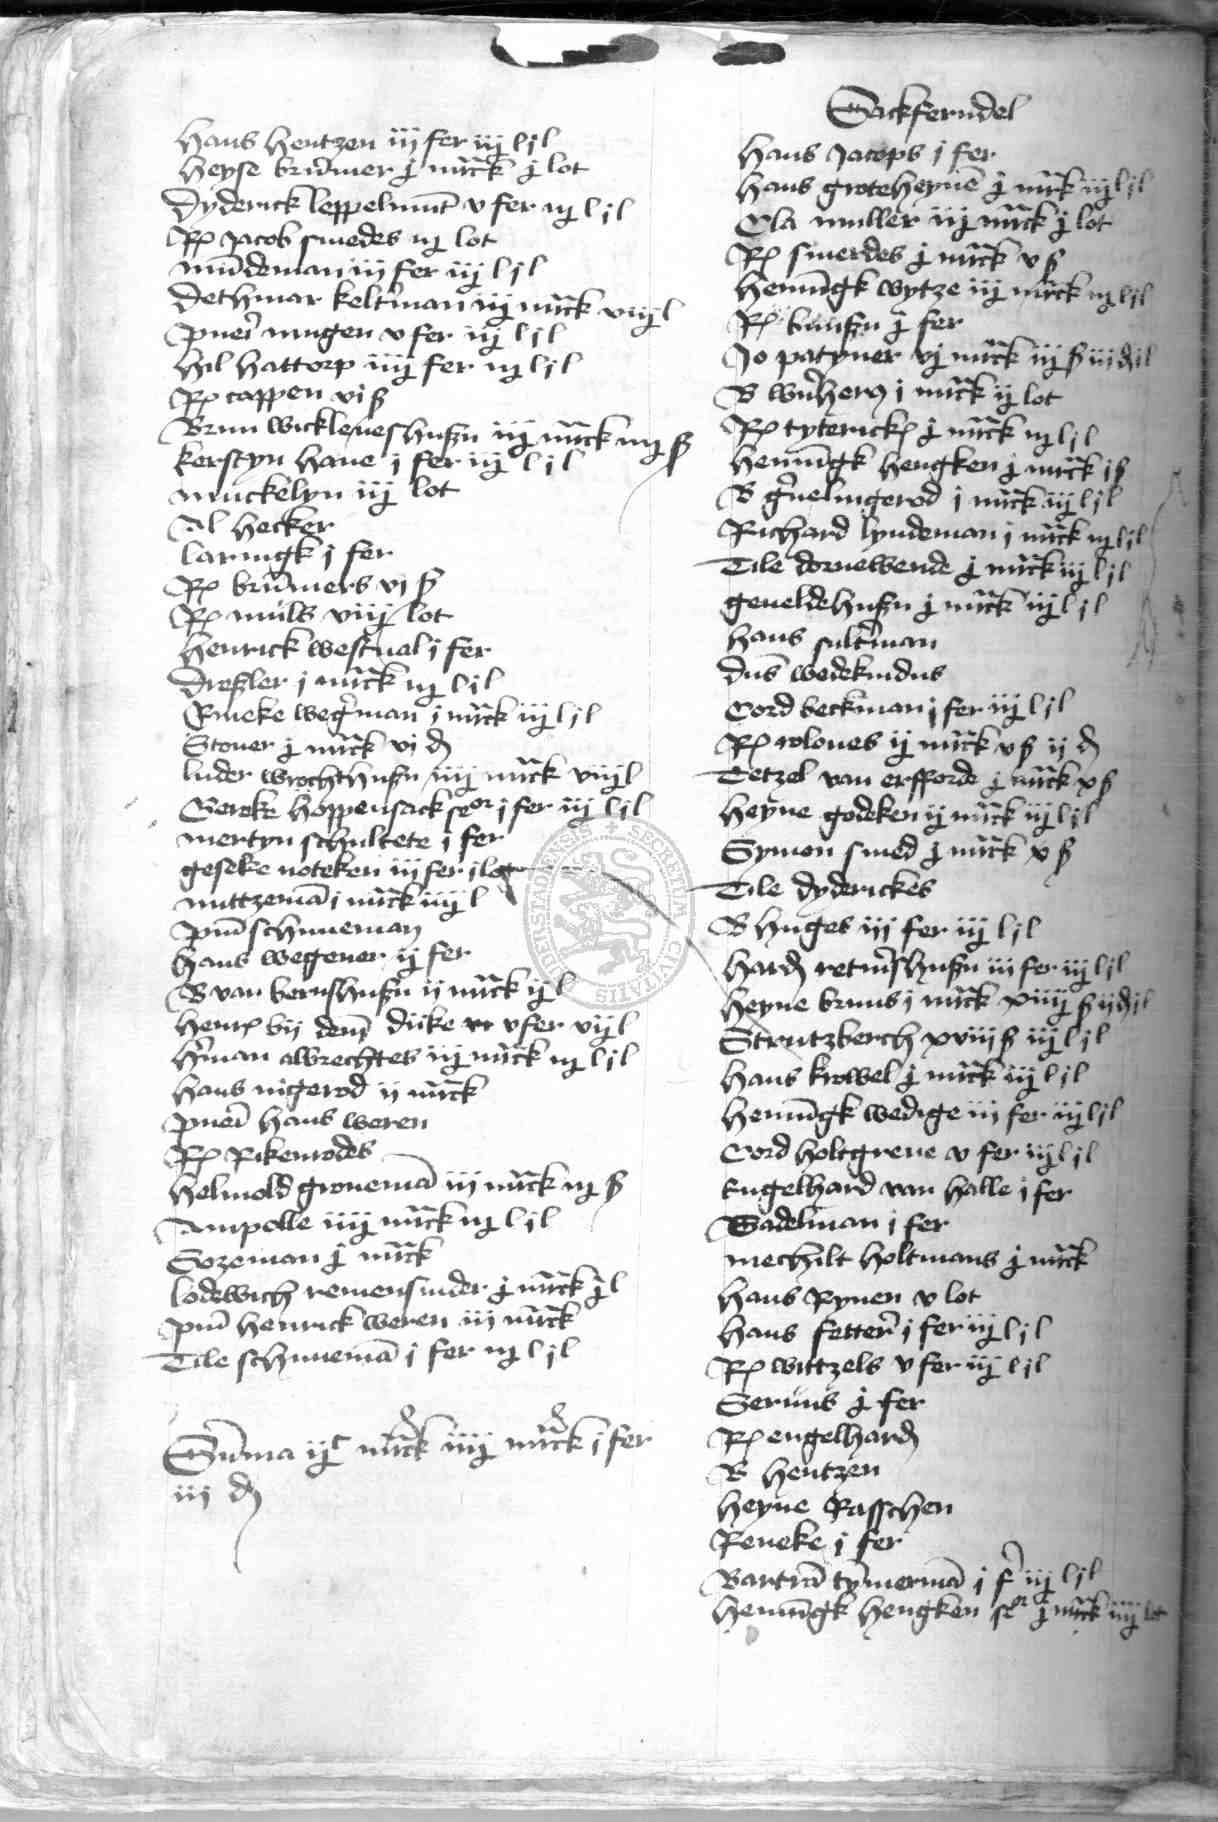 Hans Hentzen iij fer iij l j l
Heyse brũmer j mrck j lot
Dyderick leppelmũt v fer ııj l j l
Rel Jacob smedes ııj lot
mũdeman iij fer iij l j l
Dethmar kelt'man iij mrck viij l
Puei nungen v fer iij l j l
Hil Hattorp iiij fer ııj l j l
Rel cappen vi ß
Brun wickleueshußn iij mrck ııj ß
kerstyn Haue j fer iij l j l
muckelyn iij lot
Al Hecker
laringk j fer
Rel brũmers vi ß
Rel muls viij lot
Henrick westual j fer
Dreßler j mrck ııj l j l
Emeke weg'man j mrck iij l j l
Stouer j mrck vi d
luder wrochthußn iiij mrck viij l
Gereke Hoppensack seor j fer iij l j l
mertyn schultete j fer
geseke noteken iij fer j lot
muttzemã j mrck iiij l
puı schuneman
Hans wegener ij fer
B van bernshußn ii mrck ij l
Henr bij dem dijke v fer vij l
H'man albrechtes iij mrck ııj l j l
Hans nigerod ij mrck
puei Hans weren
Rel Rikenrodes
Helmold gronemã iij mrck ııj ß
Ampolle iiij mrck ııj l j l
Sozeman j mrck
lodewich remensnider j mrck j l
pui Henrick weren iij mrck
Tile schunemã j fer ııj l j l
Sũma ijc mrck iiij mrck j fer
iij d
Sackferndel
Hans Jacops j fer
Hans groteheynẽ j mrck iij l j l
Cla muller iij mrck j lot
Rel smerdes j mrck v ß
Hennĩgk wytze iij mrck ııj l j l
Rel bunßn j fer
Jo patyner vj mrck iij ß iij d j l
B j mrck ij lot
Rel tyterickes j mrck ııj l j l
Hennĩgk Hengken j mrck j ß
B g'uelingerod j mrck iij l j l
Richard lyndeman j mrck ııj l j l
Tile dornewende j mrck iij l j l
geueldehußn j mrck iij l j l
Hans sult'man
Dñs wedekindus
Cord beckman j fer iij l j l
Rel rolones ij mrck v ß ij d
Tetzel van erfforde j mrck x ß
Heyne godeken ij mrck iij l j l
Symon smed j mrck x ß
Tile dyderickes
B Huges iij fer iij l j l
Hard ret'ushußn iij fer iij l j l
Heyne bruns j mrck xiiij ß ij d j l
Strutzberch xviij ß iij l j l
Hans krowel j mrck iij l j l
Hennĩgk wedige iij fer iij l j l
Cord Holtgreue v fer iij l j l
Engelhard van Halle j fer
Gadelman j fer
mechilt Holtmans j mrck
Hans Rynen v lot
Hans fetter j fer iij l j l
Rel wittzels v fer iij l j l
Seruus j fer
Rel engelhard
B Hentzen
Heyne Rasschen
Reneke j fer
Bartrã tymermã j f' iij l j l
Hennĩgk Hengken seor j mrck iiij lot
SECRETUM CIVITATIS DUDERSTADENSIS